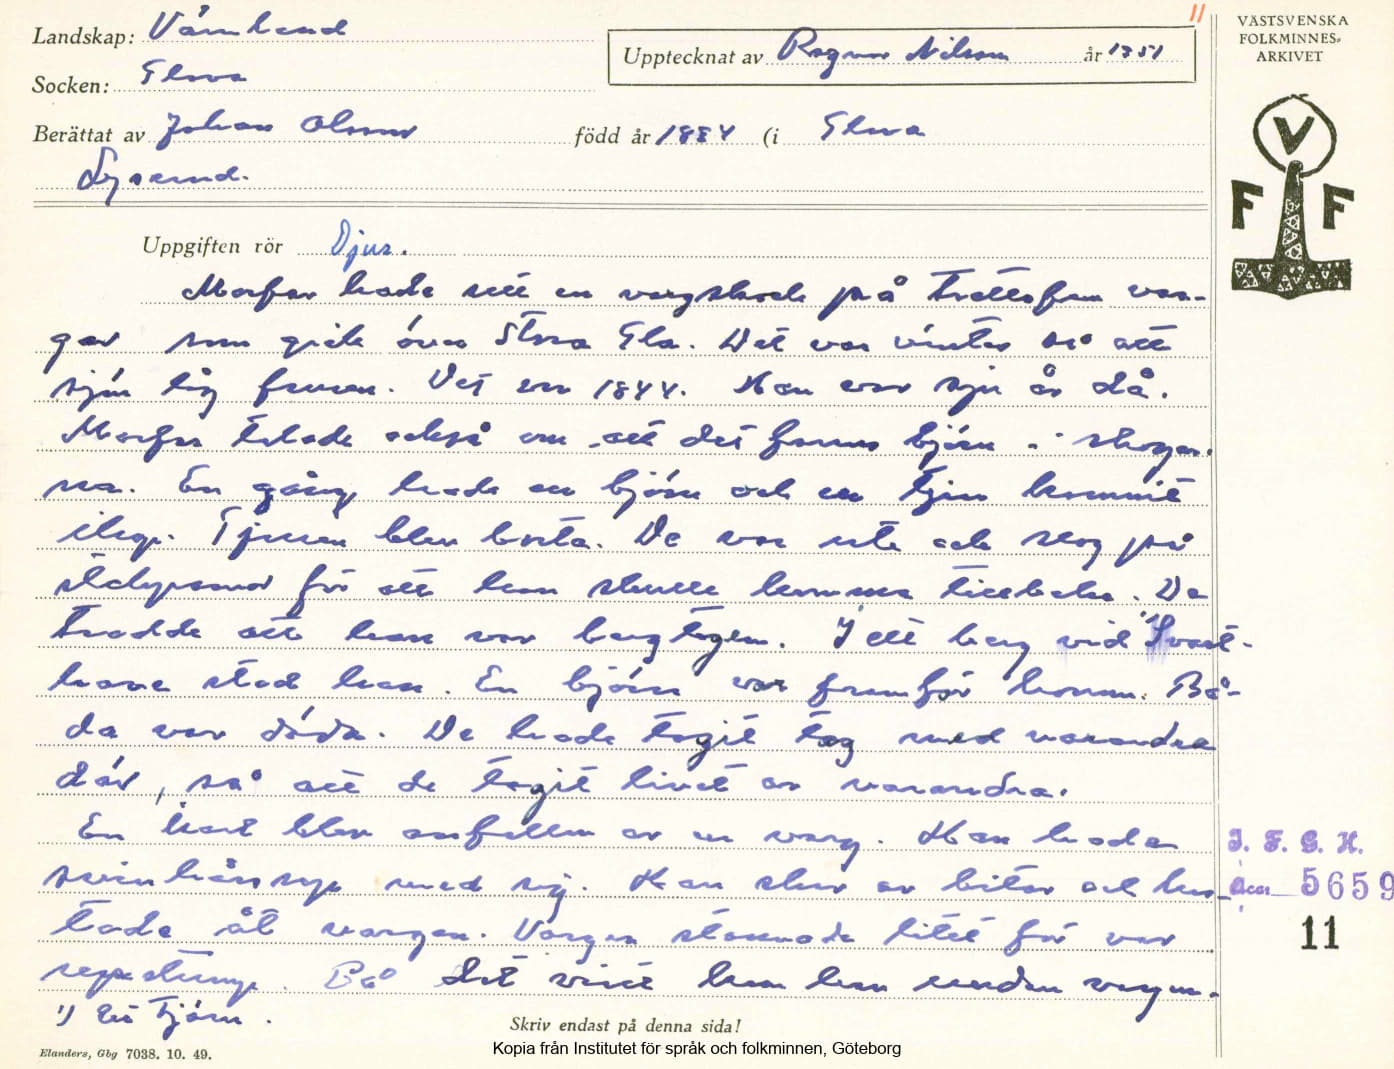 11
Landskap: Värmland
Socken: Glava
Upptecknat av Ragnar Nilsson år 1951
VÄSTSVENSKA
FOLKMINNES-
ARKIVET
Berättat av Johan Olsson född år 1884 (i Glava
Lysarud.
V
F F
Uppgiften rör Djur.
Morfar hade sett en vargskock på trettofem var-
gar som gick över Stora Gla. Det var vinter så att
sjön låg frusen. Det var 1844. Han var sju år då.
Morfar talade också om att det fanns björn i skogar-
na. En gång hade en björn och en tjur kommit
ihop. Tjuren blev borta. De var ute och slog på
för att han skulle komma tillbaka. De
trodde att han var bergtagen. I ett berg vid 1)
stod han. En björn var framför honom. Bå-
da var döda. De hade tagit tag med varandra
där, så att de tagit livet av varandra.
En karl blev anfallen av en varg. Han hade
svinhårsrep med sig. Han skar av bitar och kas-
tade åt vargen. Vargen stannade litet för var
repstump. På det viset kom han undan vargen.
1) En tjärn.
J. F. G. H.
Acc. 5659
11
Skriv endast på denna sida!
Elanders, Gbg 7038. 10. 49.
Kopia från Institutet för språk och folkminnen, Göteborg